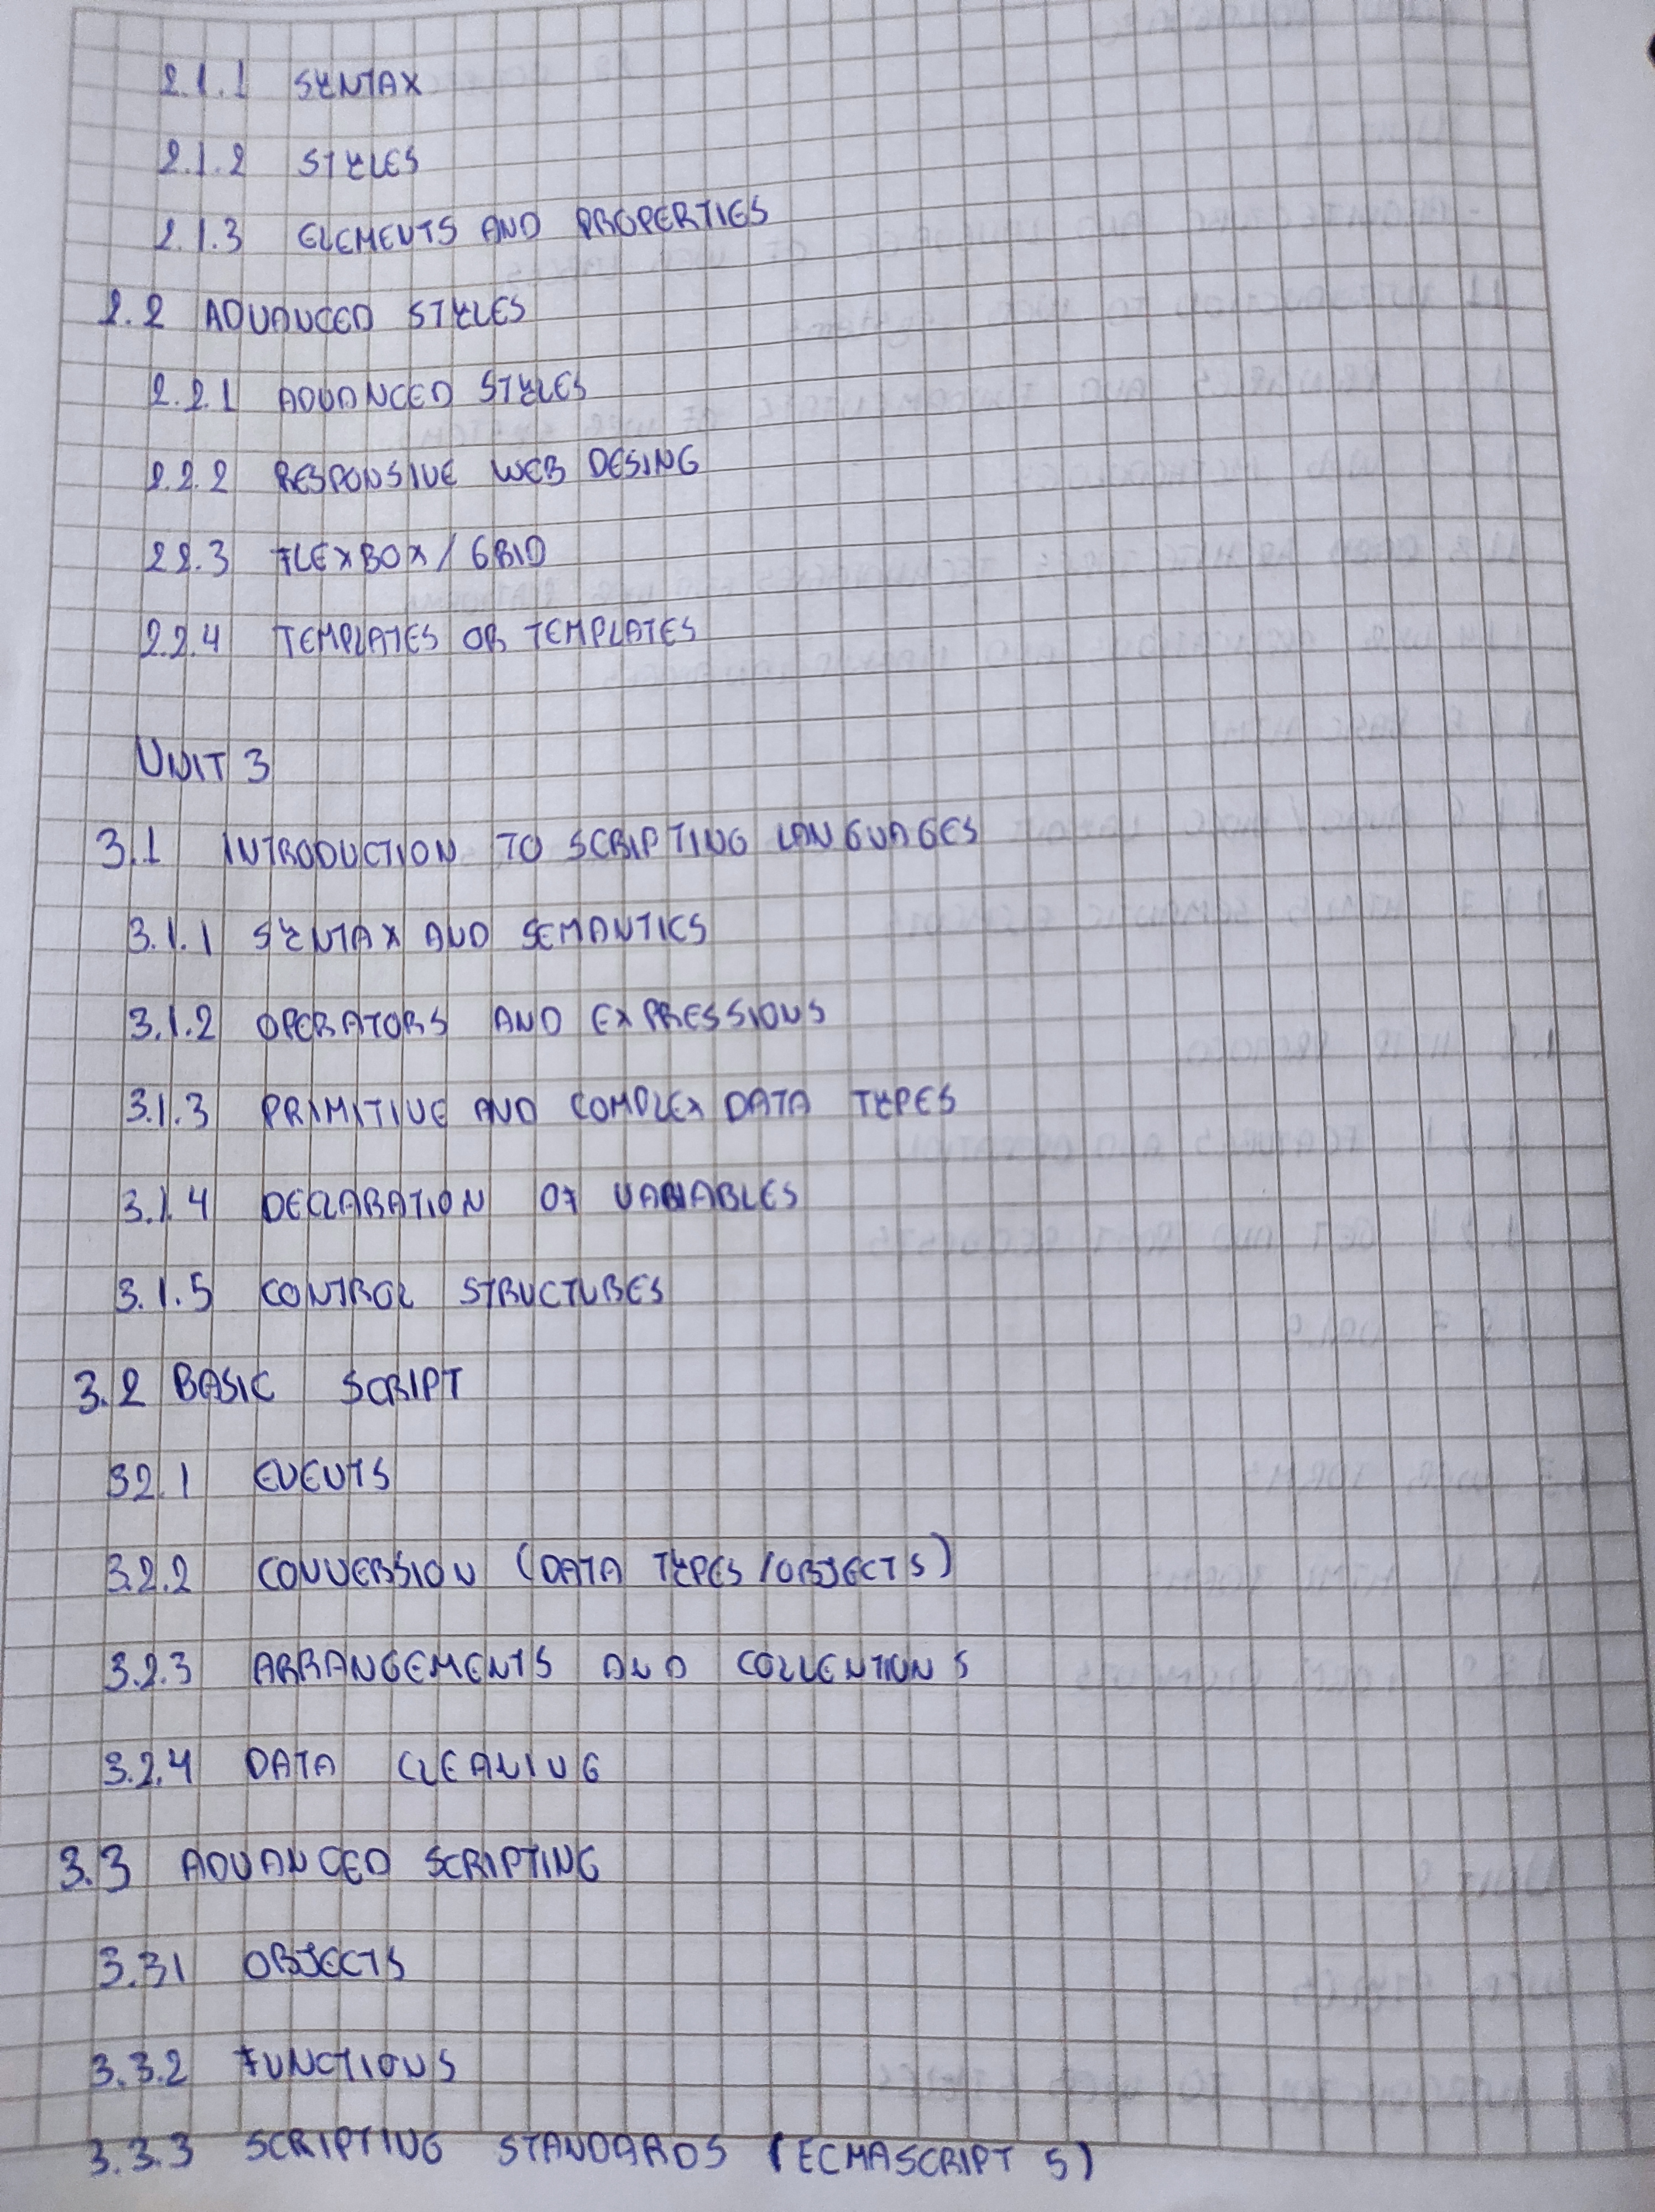 2.1.1 SYNTAX
2.1.2 STYLES
2.1.3 ELEMENTS AND PROPERTIES
2.2 ADVANCED STYLES
2.2.1 ADVANCED STYLES
2.2.2 RESPONSIVE WEB DESING
2.2.3 FLEXBOX / GRID
2.2.4 TEMPLATES OR TEMPLATES
UNIT 3
3.1 INTRODUCTION TO SCRIPTING LANGUAGES
3.1.1 SYNTAX AND SEMANTICS
3.1.2 OPERATORS AND EXPRESSIONS
3.1.3 PRIMITIVE AND COMPLEX DATA TYPES
3.1.4 DECLARATION OF VARIABLES
3.1.5 CONTROL STRUCTURES
3.2 BASIC SCRIPT
3.2.1 EVENTS
3.2.2 CONVERSION (DATA TYPES / OBJECTS)
3.2.3 ARRANGEMENTS AND COLLENTIONS
3.2.4 DATA CLEANING
3.3 ADVANCED SCRIPTING
3.3.1 OBJECTS
3.3.2 FUNCTIONS
3.3.3 SCRIPTING STANDARDS (ECMASCRIPT 5)